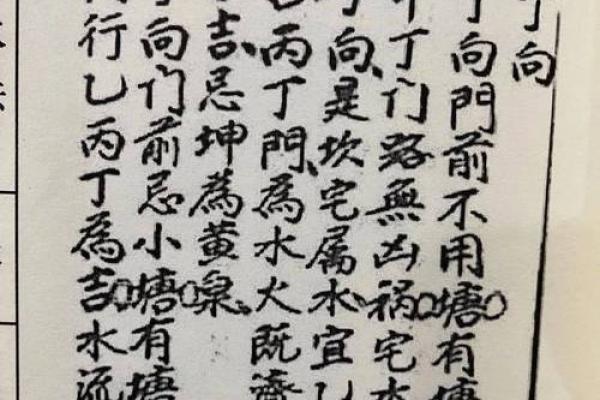 丁向
丁向門前不用塘○有塘
丁门路無凶祸○宅
向是坎宅属水宜
丙丁門、為水火既濟
吉忌坤為黄泉、
向门前忌小塘○有塘
行乙丙丁為吉○水流